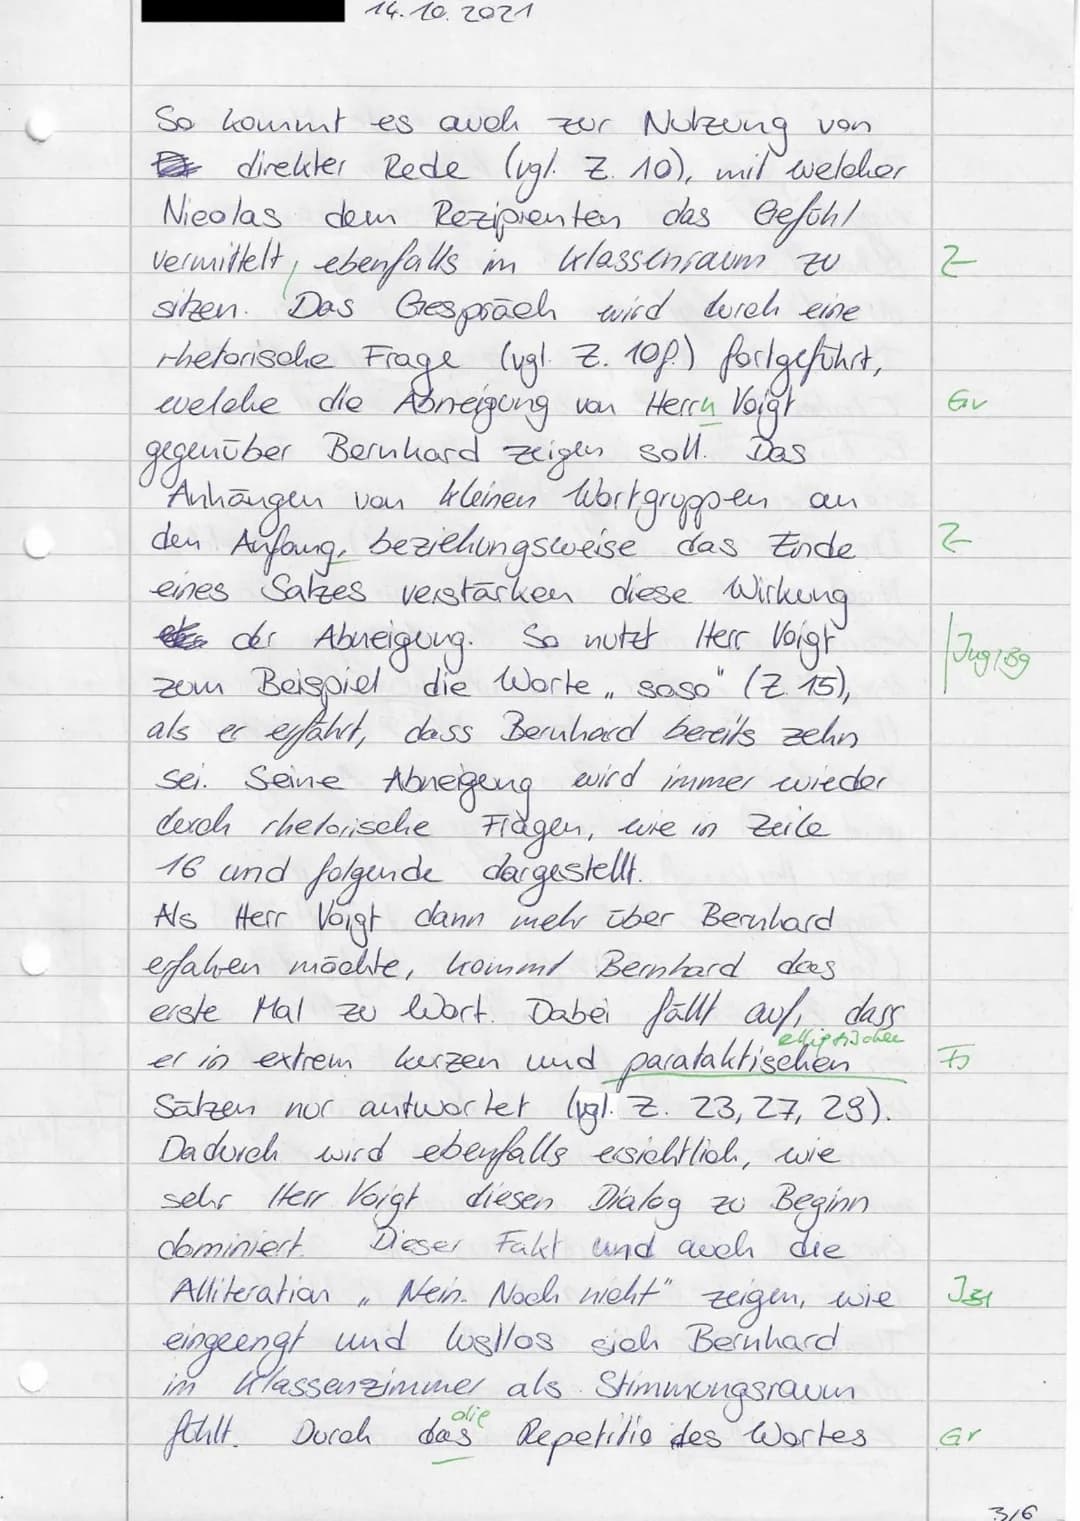 14.10.2021
So kommt es auch zur Nutzung von
direkter Rede (vgl. Z. 10), mit welcher
Nicolas dem Rezipienten das Gefühl
vermittelt, ebenfalls im Klassenraum zu
Z
sitzen. Das Gespräch wird durch eine
rhetorische Frage (vgl. Z. 10f.) fortgeführt,
welche die Abneigung von Herrn Voigt
Gr
gegenüber Bernhard zeigen soll. Das
Anhängen von kleinen Wortgruppen an
den Anfang, beziehungsweise das Ende
Z
eines Satzes verstärken diese Wirkung
der Abneigung. So nutzt Herr Voigt
zum Beispiel die Worte „soso" (Z. 15),
als er erfährt, dass Bernhard bereits zehn
sei. Seine Abneigung wird immer wieder
durch rhetorische Fragen, wie in Zeile
16 und folgende dargestellt.
Als Herr Voigt dann mehr über Bernhard
erfahren möchte, kommt Bernhard das
erste Mal zu Wort. Dabei fällt auf, dass
elliptischen
er in extrem kurzen und parataktischen
Fs
Sätzen nur antwortet (vgl. Z. 23, 27, 29).
Dadurch wird ebenfalls ersichtlich, wie
sehr Herr Voigt diesen Dialog zu Beginn
dominiert. Dieser Fakt und auch die
Alliteration „Nein. Noch nicht" zeigen, wie
eingeengt und lustlos sich Bernhard
im Klassenzimmer als Stimmungsraum
die
fühlt. Durch das Repetitio des Wortes
Gr
3/6